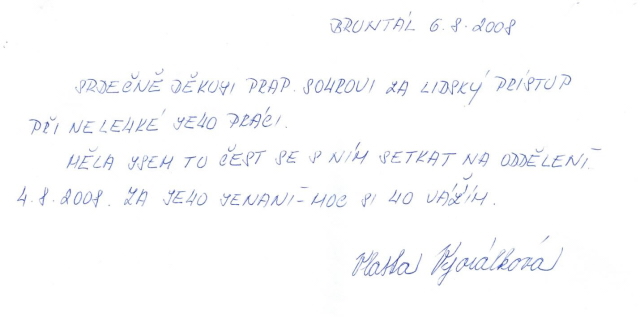 BRUNTÁL 6.8.2008
SRDEČNĚ DĚKUJI PRAP. SOHROVI ZA LIDSKÝ PRÍSTUP
PŘI NELEHKÉ JEHO PRÁCI.
MĚLA JSEM TU ČEST SE S NÍM SETKAT NA ODDĚLENÍ
4.8.2008. ZA JEHO JENANÍ-MOC SI HO VÁŽÍM.
Vlasta